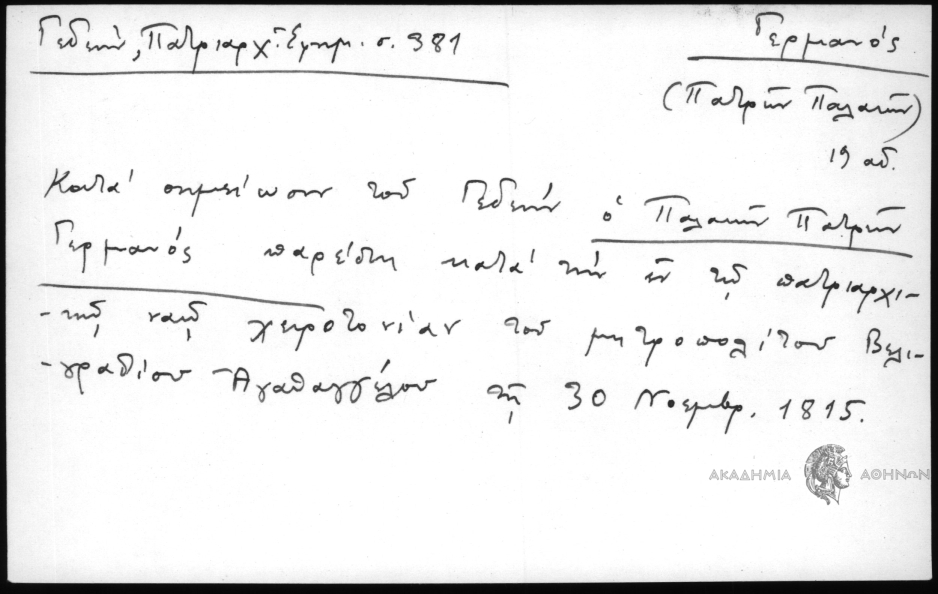 Γεδεών, Πατριαρχ. Εφημ. σ. 381
Γερμανός
(Πατρών Παλαιών)
19 αδ.
Κατά σημείωσιν του Γεδεών ὁ Παλαιών Πατρών
Γερμανός παρέστη κατά την ἐν τῷ πατριαρχι-
-κῷ ναῷ χειροτονίαν του μητροπολίτου Βελι-
-γραδίου Ἀγαθαγγέλου τῇ 30 Νοεμβρ. 1815.
ΑΚΑΔΗΜΙΑ ΑΘΗΝΩΝ